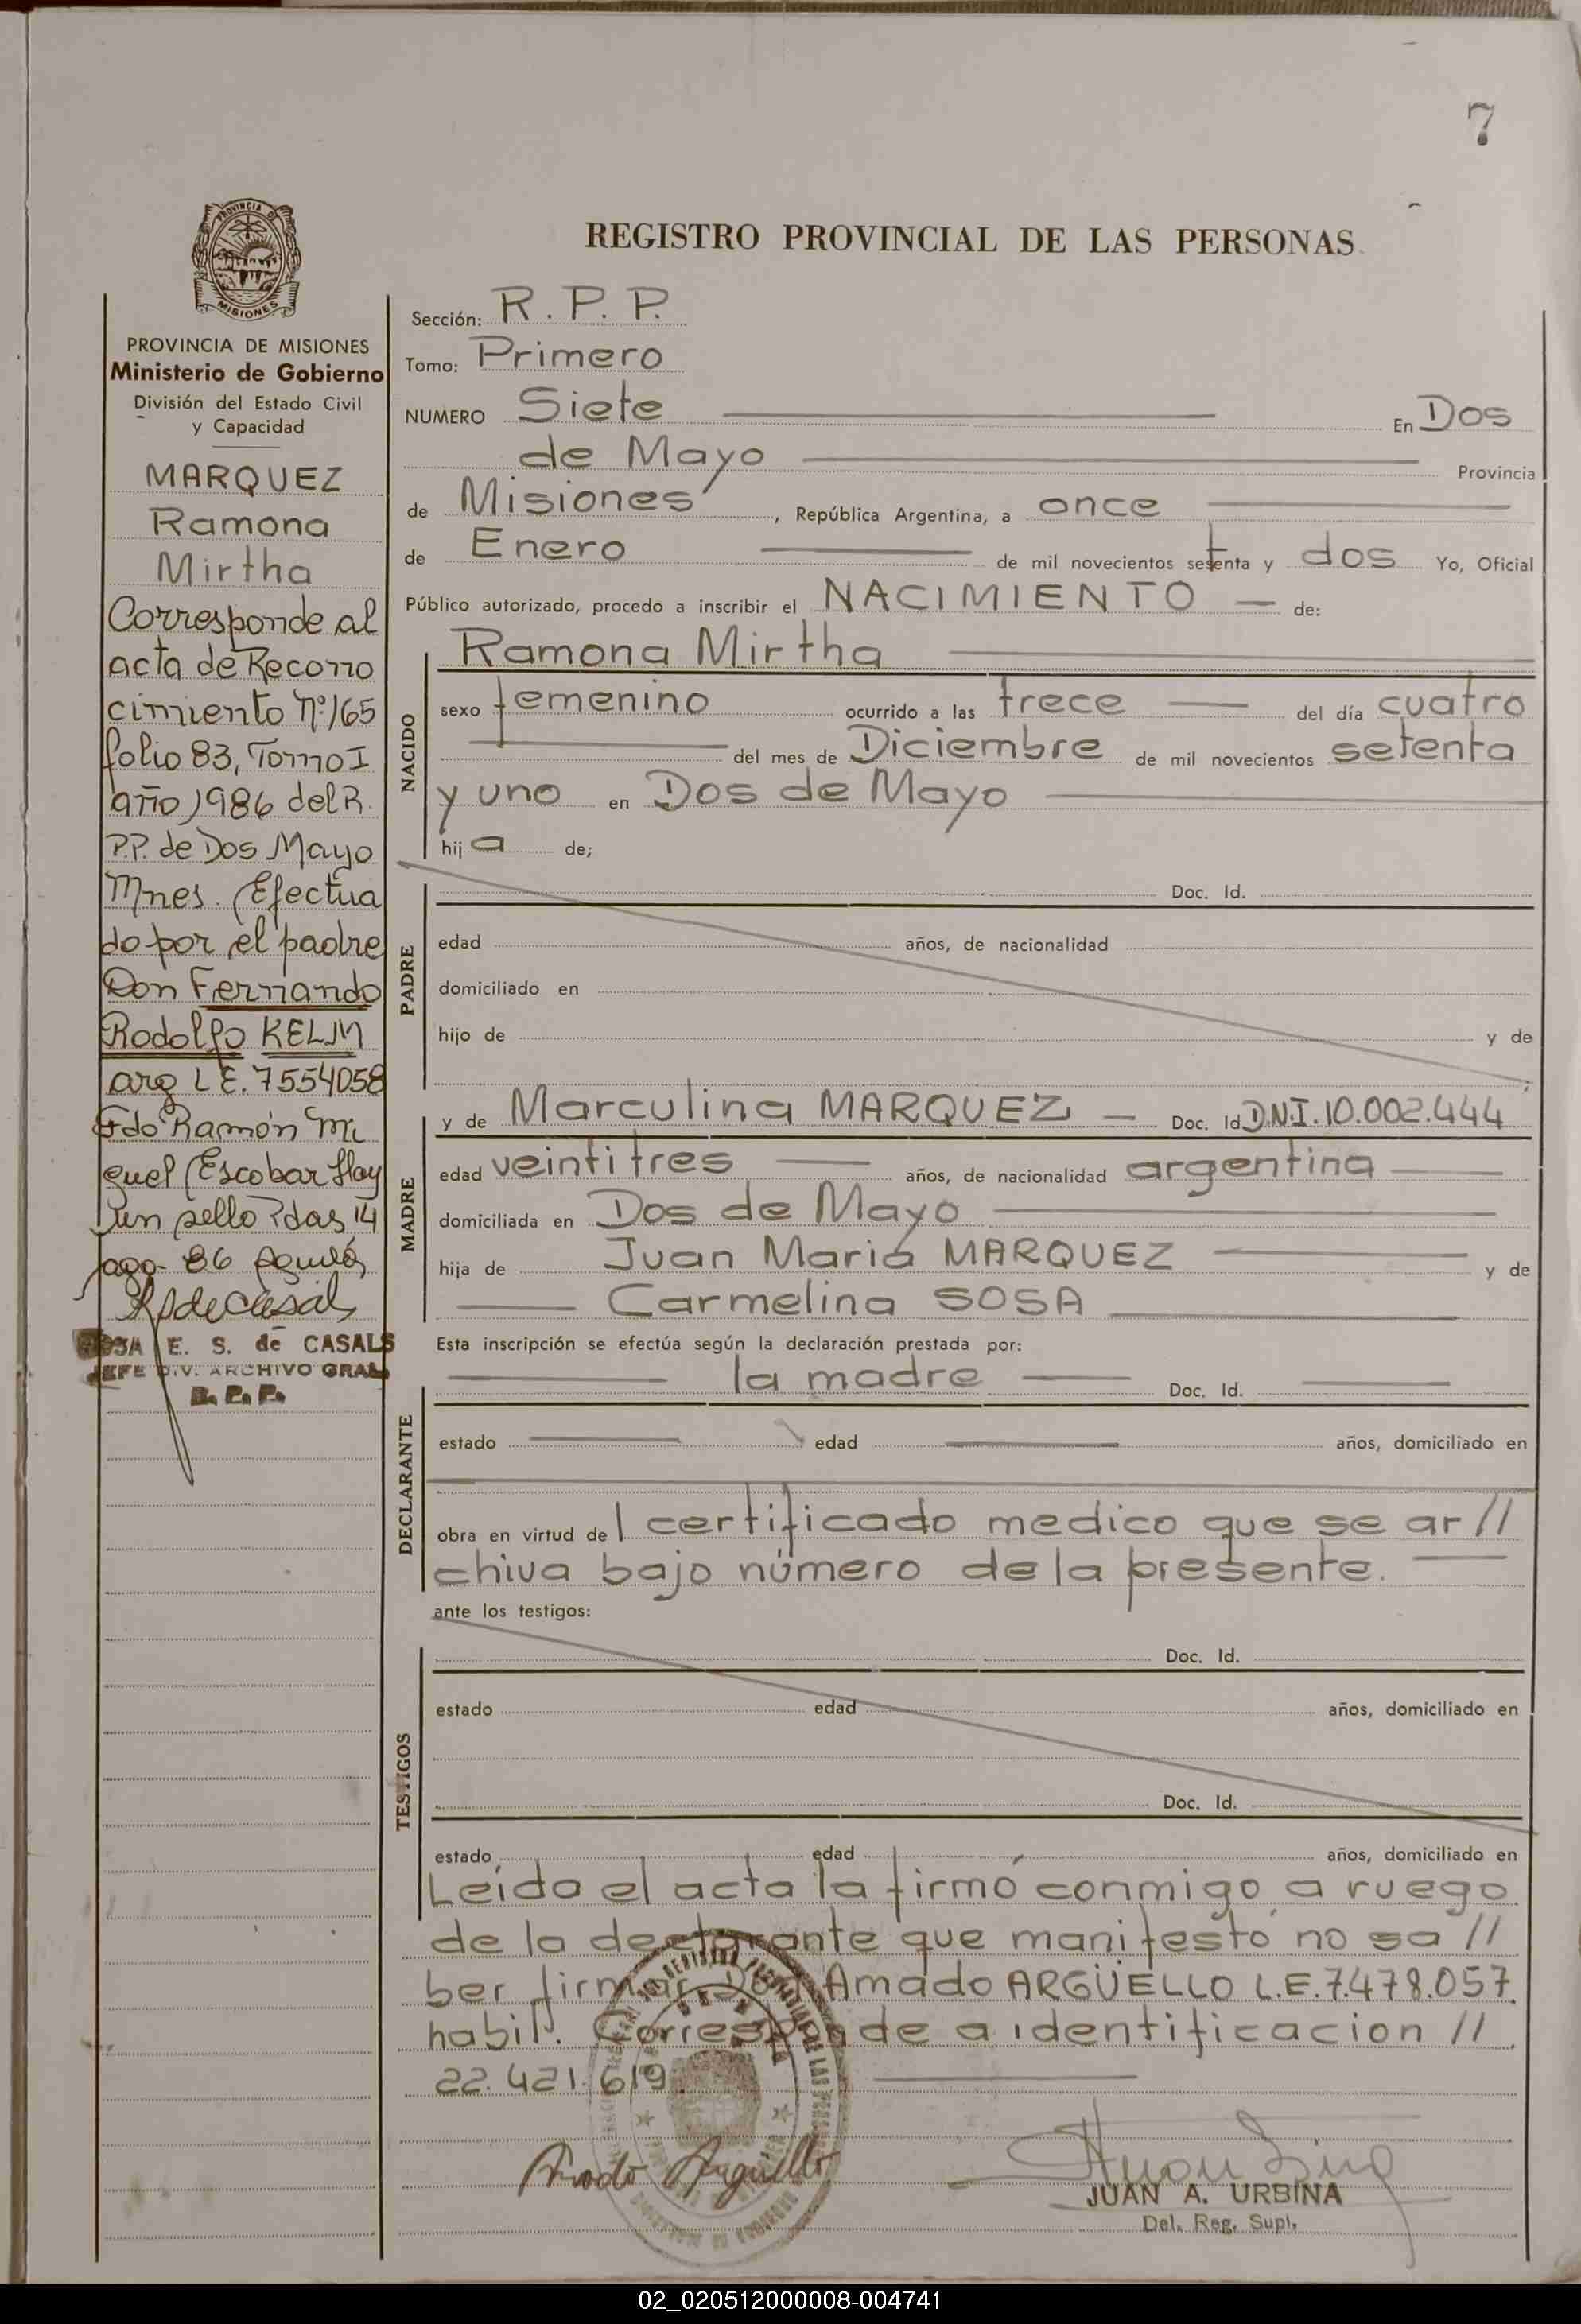 7
PROVINCIA DE
MISIONES
PROVINCIA DE MISIONES
Ministerio de Gobierno
División del Estado Civil
y Capacidad
MARQUEZ
Ramona
Mirtha
Corresponde al
acta de Recono
cimiento Nº 165
folio 83, Tomo I
año 1986 del R.
P.P. de Dos Mayo
Mnes. (Efectua
do por el padre
Don Fernando
Rodolfo KELM
arg L E. 7554058
Fdo Ramón Mi
guel Escobar Hay
un sello Pdas 14
ago 86
E. S. de CASALS
JEFE DIV. ARCHIVO GRAL
REGISTRO PROVINCIAL DE LAS PERSONAS
Sección: R. P. P.
Tomo: Primero
NUMERO Siete En Dos
de Mayo Provincia
de Misiones, República Argentina, a once
de Enero de mil novecientos setenta y dos Yo, Oficial
Público autorizado, procedo a inscribir el NACIMIENTO — de:
NACIDO
Ramona Mirtha
sexo femenino ocurrido a las trece del día cuatro
del mes de Diciembre de mil novecientos setenta
y uno en Dos de Mayo
hij a de;
PADRE
Doc. Id.
edad años, de nacionalidad
domiciliado en
hijo de y de
MADRE
y de Marculina MARQUEZ — Doc. Id D.N.I. 10.002.444
edad veintitres años, de nacionalidad argentina
domiciliada en Dos de Mayo
hija de Juan Maria MARQUEZ y de
Carmelina SOSA
Esta inscripción se efectúa según la declaración prestada por:
DECLARANTE
la madre Doc. Id.
estado edad años, domiciliado en
obra en virtud de l certificado medico que se ar//
chiva bajo número de la presente.
ante los testigos:
TESTIGOS
Doc. Id.
estado edad años, domiciliado en
Doc. Id.
estado edad años, domiciliado en
Leída el acta la firmó conmigo a ruego
de la declarante que manifestó no sa //
ber firmar Don Amado ARGÜELLO L.E. 7.478.057
habil. Corresponde a identificacion //
22.421.619
Amado Arguello
JUAN A. URBINA
Del. Reg. Supl.
02_020512000008-004741